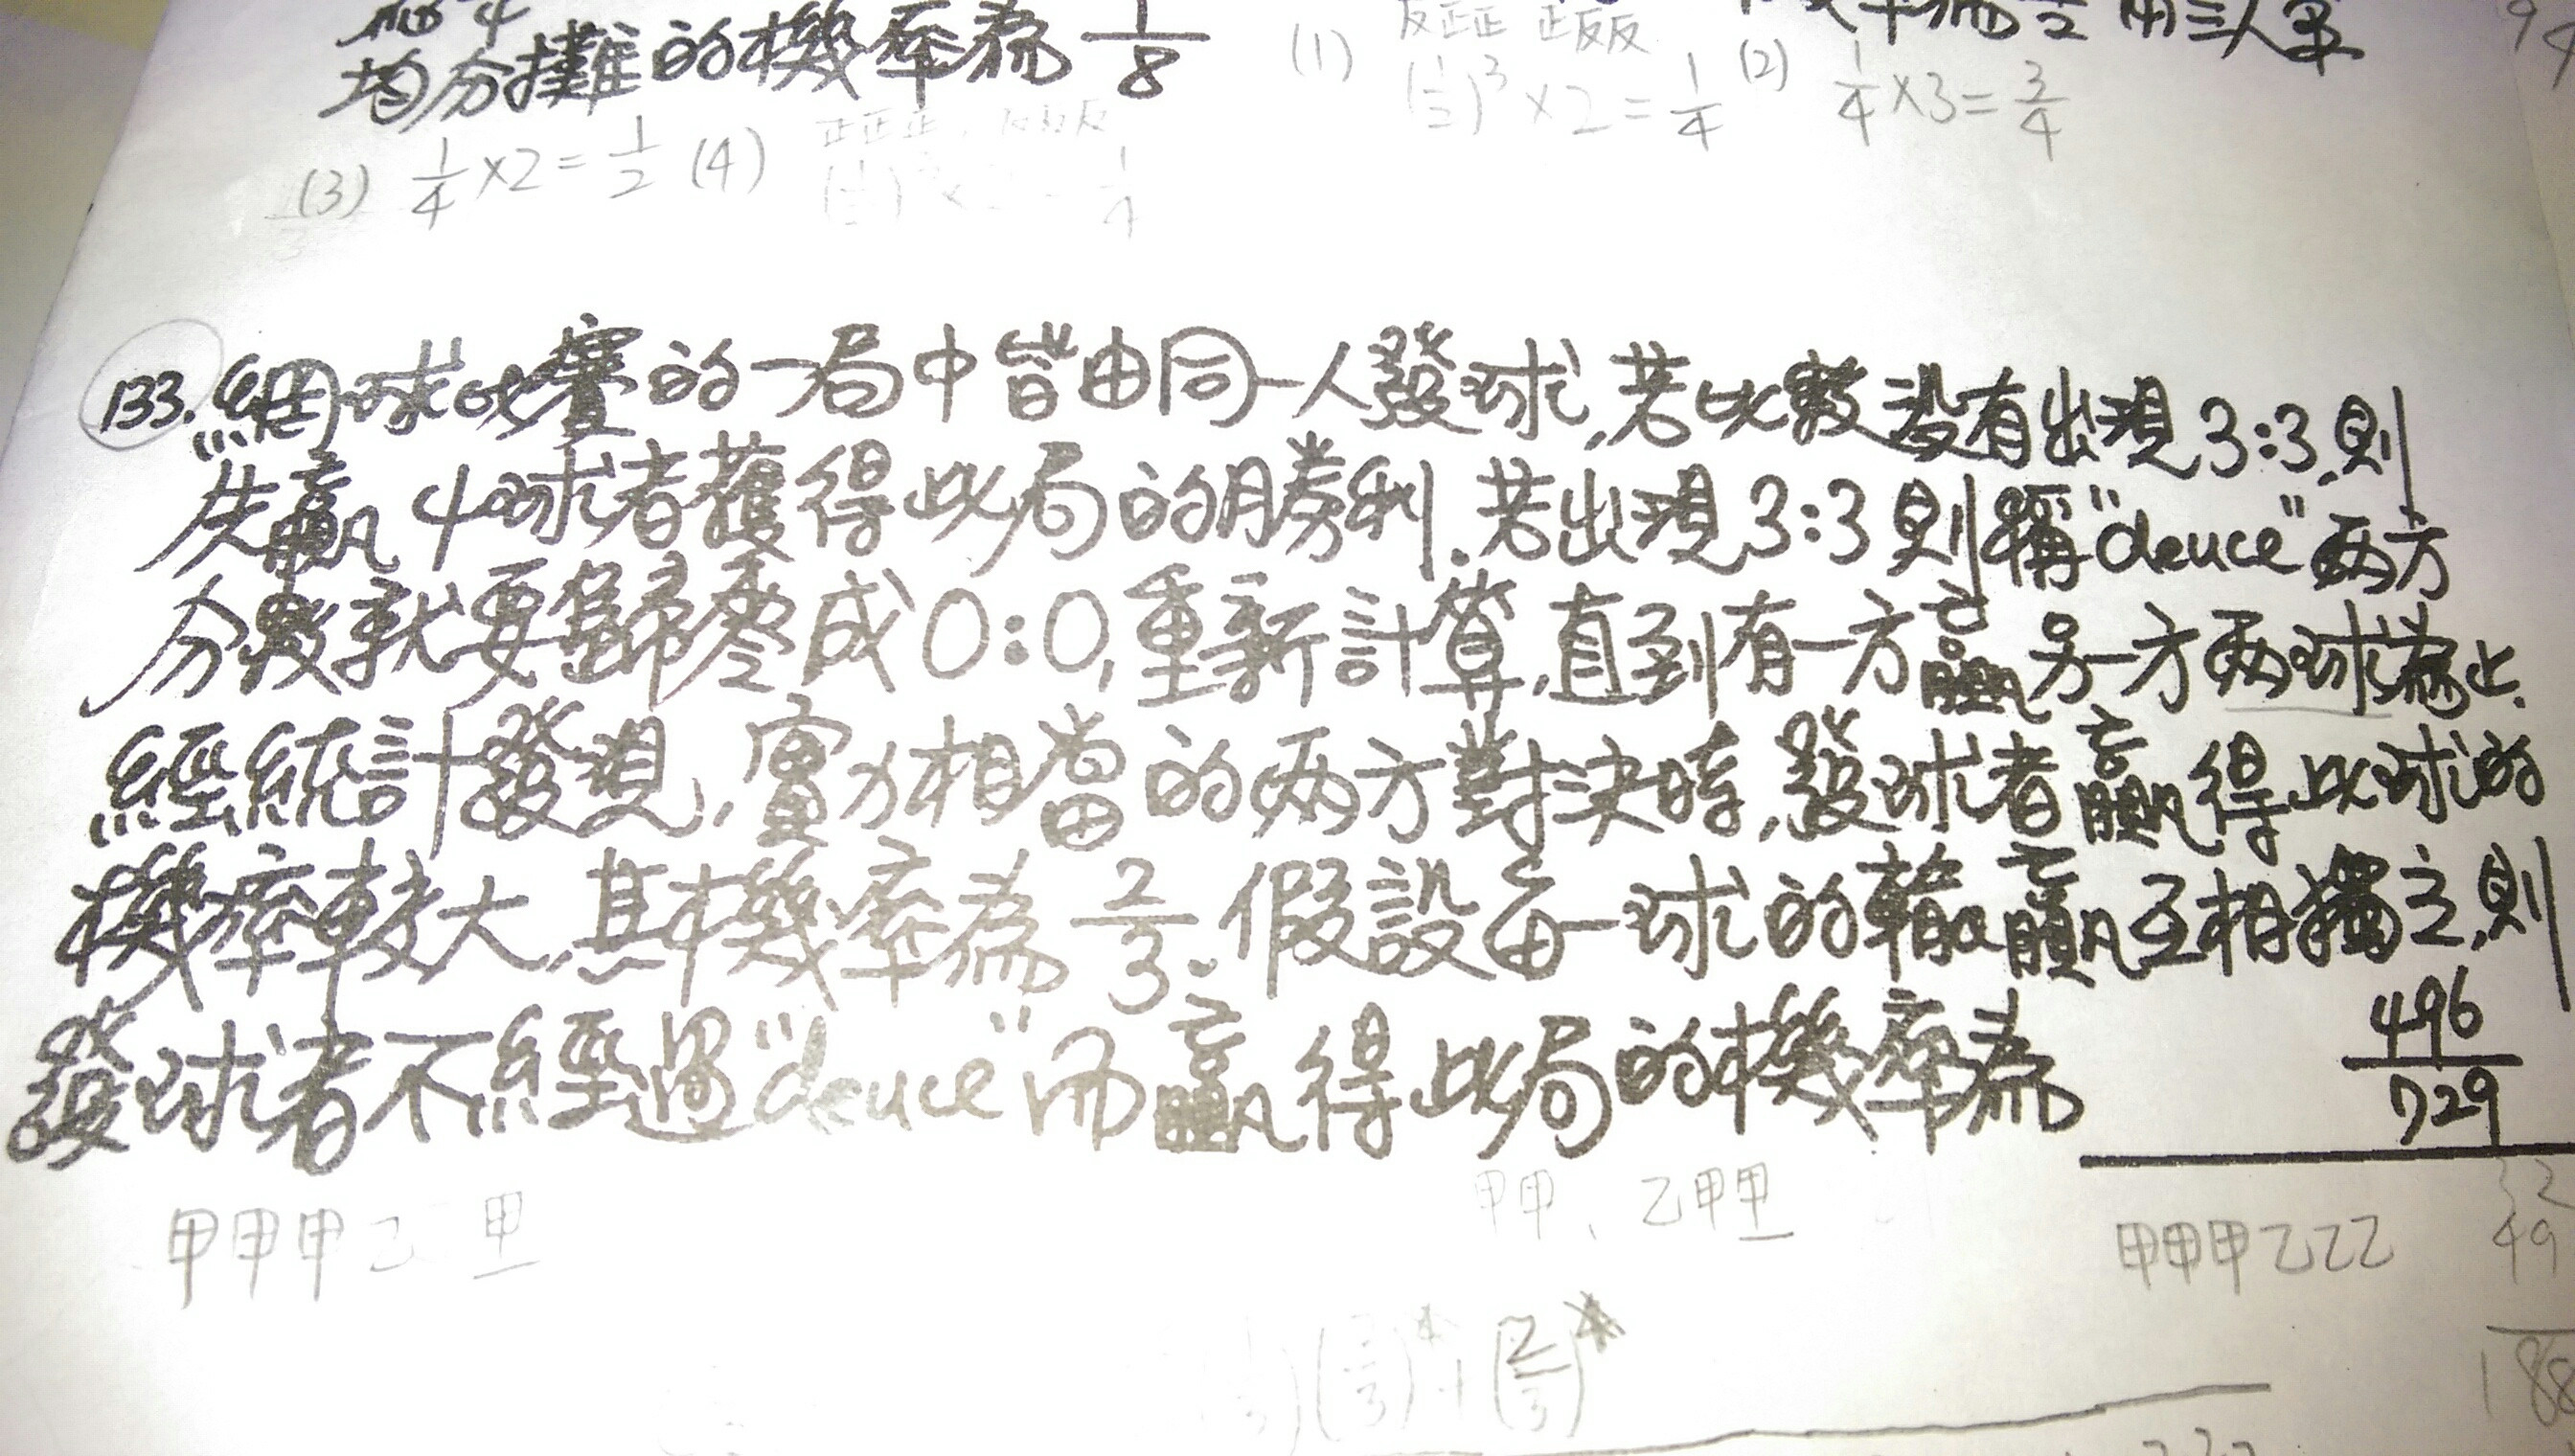 均分攤的機率為 1/8
(1) 反正正 正反反 (1/2)³×2=1/4 (2) 1/4×3=3/4
(3) 1/4×2=1/2 (4) 正正正
133. 網球比賽的一局中皆由同一人發球,若比數沒有出現3:3,則
先贏4球者獲得此局的勝利.若出現3:3則稱"deuce"兩方
分數就要歸零成0:0,重新計算,直到有一方贏另一方兩球為止.
經統計發現,實力相當的兩方對決時,發球者贏得此球的
機率較大,其機率為 2/3. 假設每一球的輸贏互相獨立,則
發球者不經過"deuce"而贏得此局的機率為 496/729
甲甲甲乙 甲 甲甲、乙甲甲 甲甲甲乙乙乙